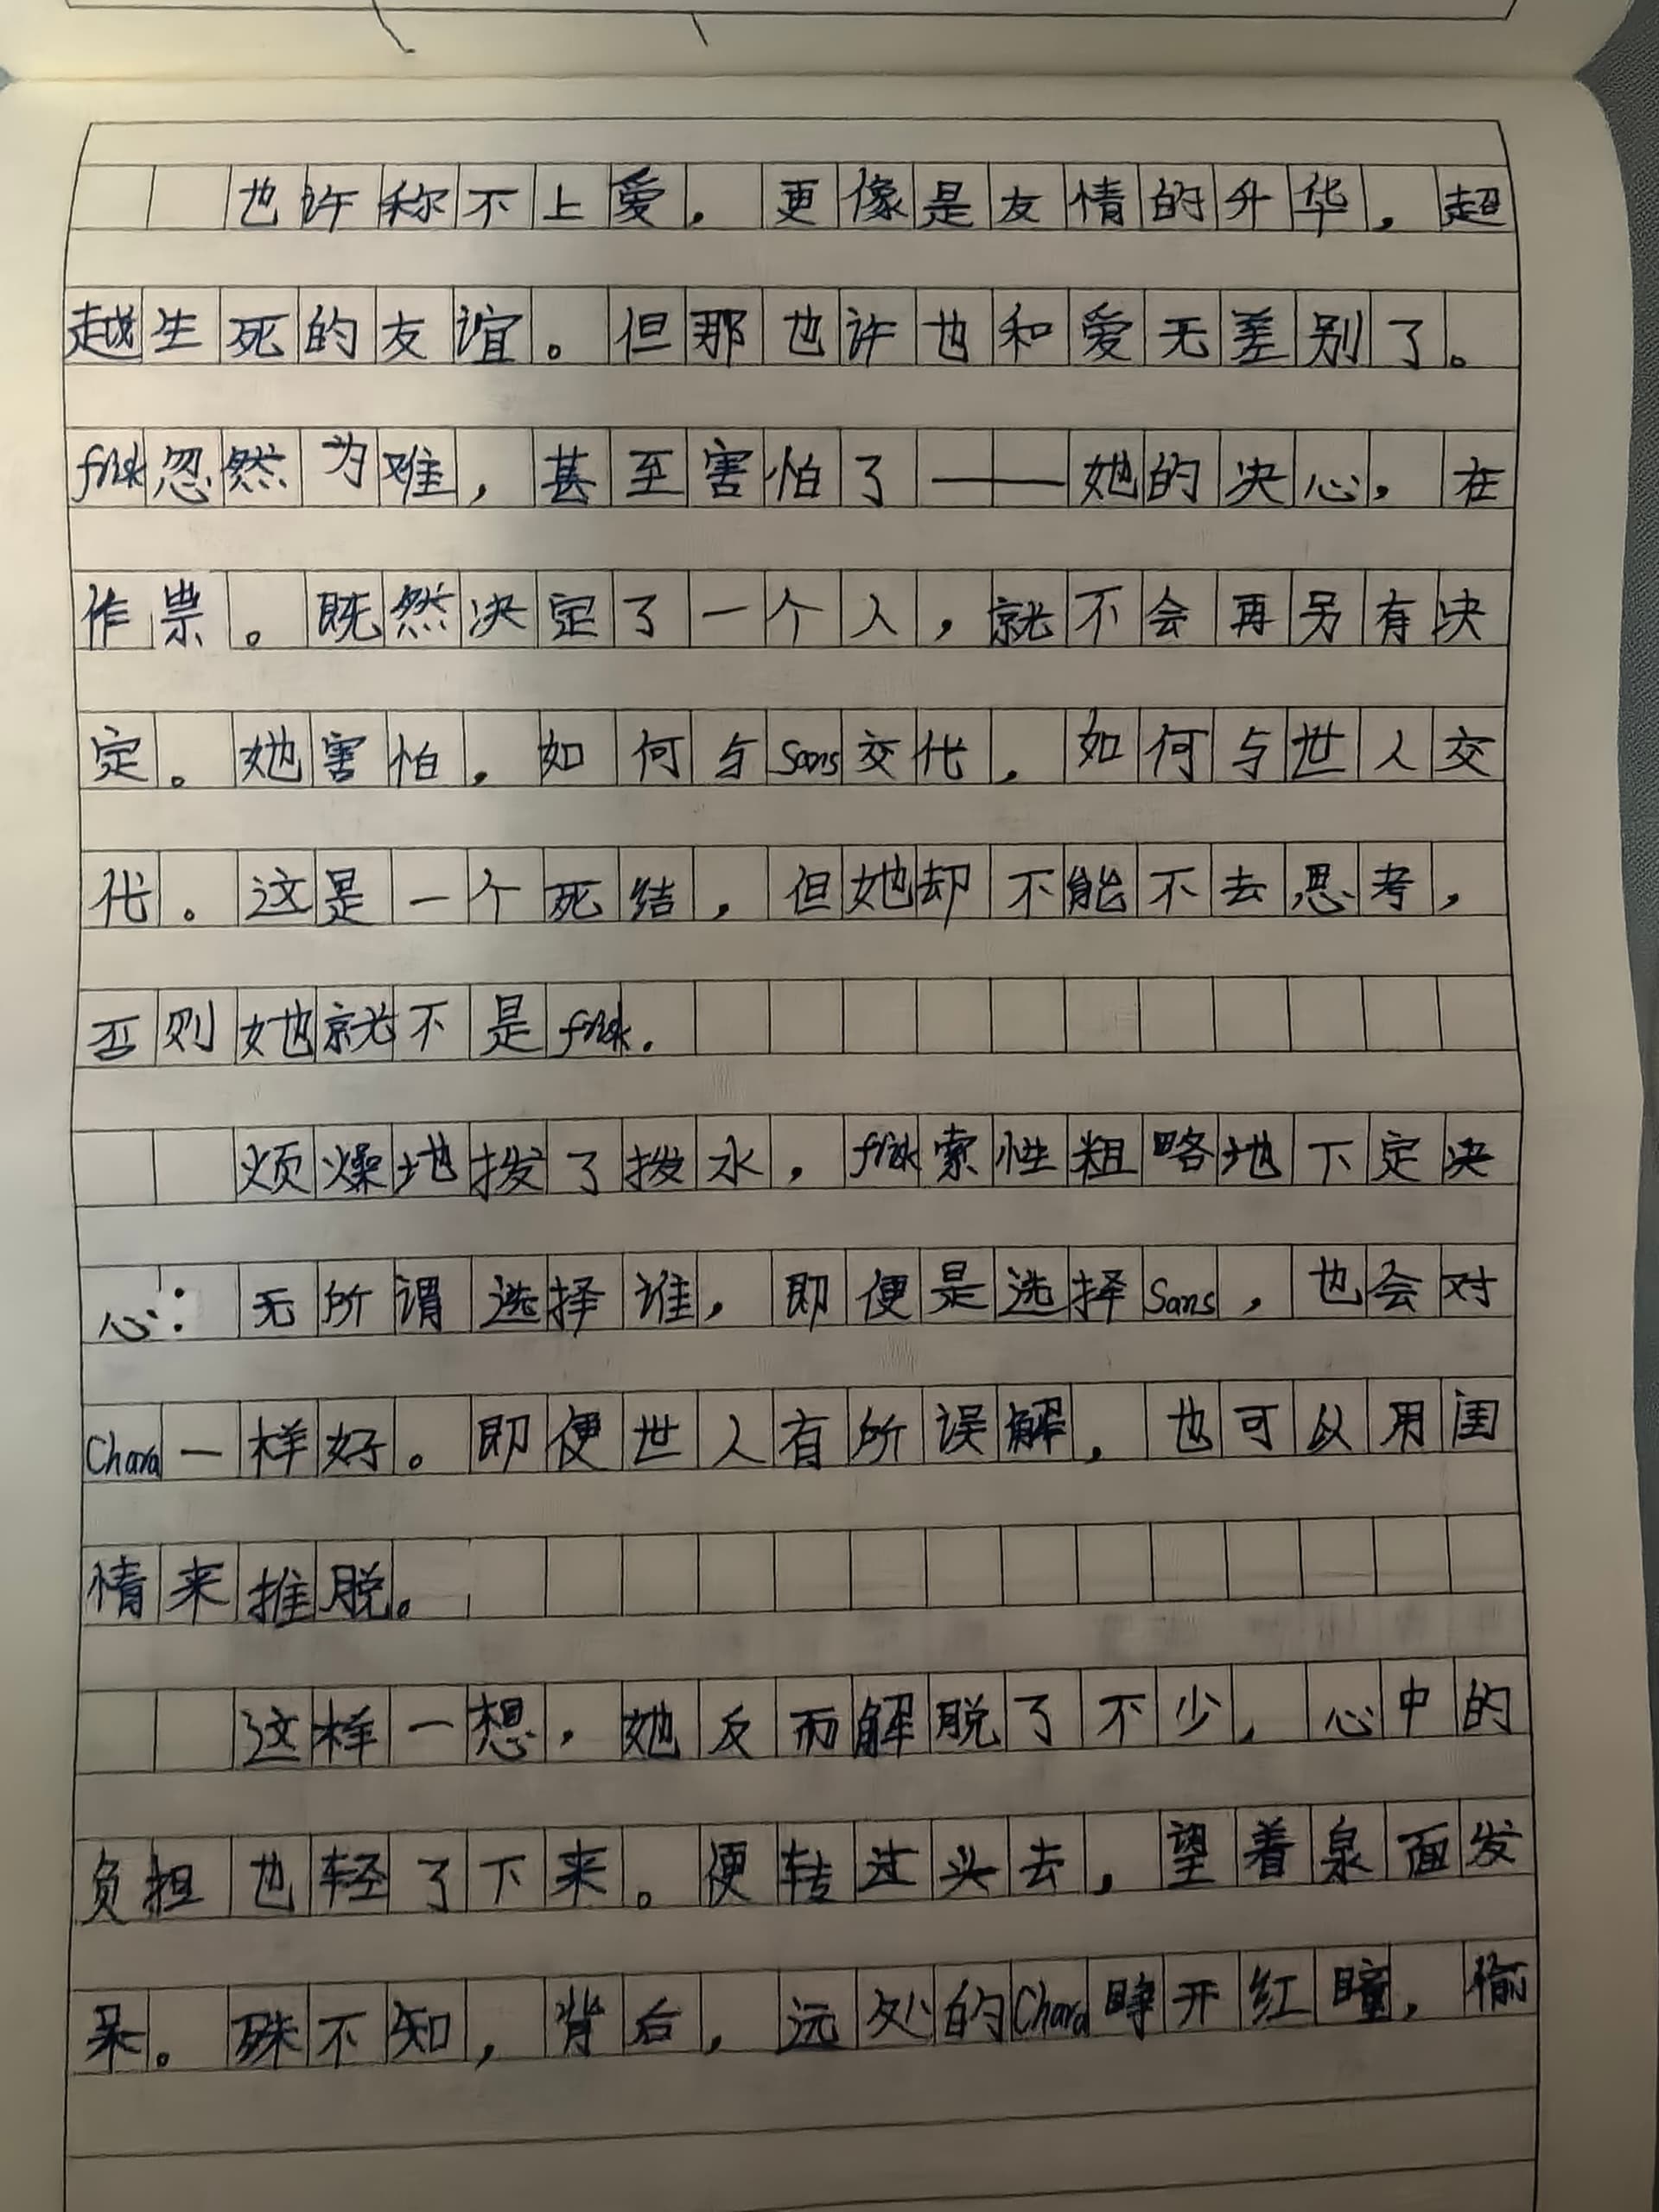 也许称不上爱，更像是友情的升华，超
越生死的友谊。但那也许也和爱无差别了。
frisk忽然为难，甚至害怕了——她的决心，在
作祟。既然决定了一个人，就不会再另有决
定。她害怕，如何与Sans交代，如何与世人交
代。这是一个死结，但她却不能不去思考，
否则她就不是frisk.
烦燥地拨了拨水，frisk索性粗略地下定决
心：无所谓选择谁，即便是选择Sans，也会对
Chara一样好。即便世人有所误解，也可以用闺
情来推脱。
这样一想，她反而解脱了不少，心中的
负担也轻了下来。便转过头去，望着泉面发
呆。殊不知，背后，远处的Chara睁开红瞳，偷